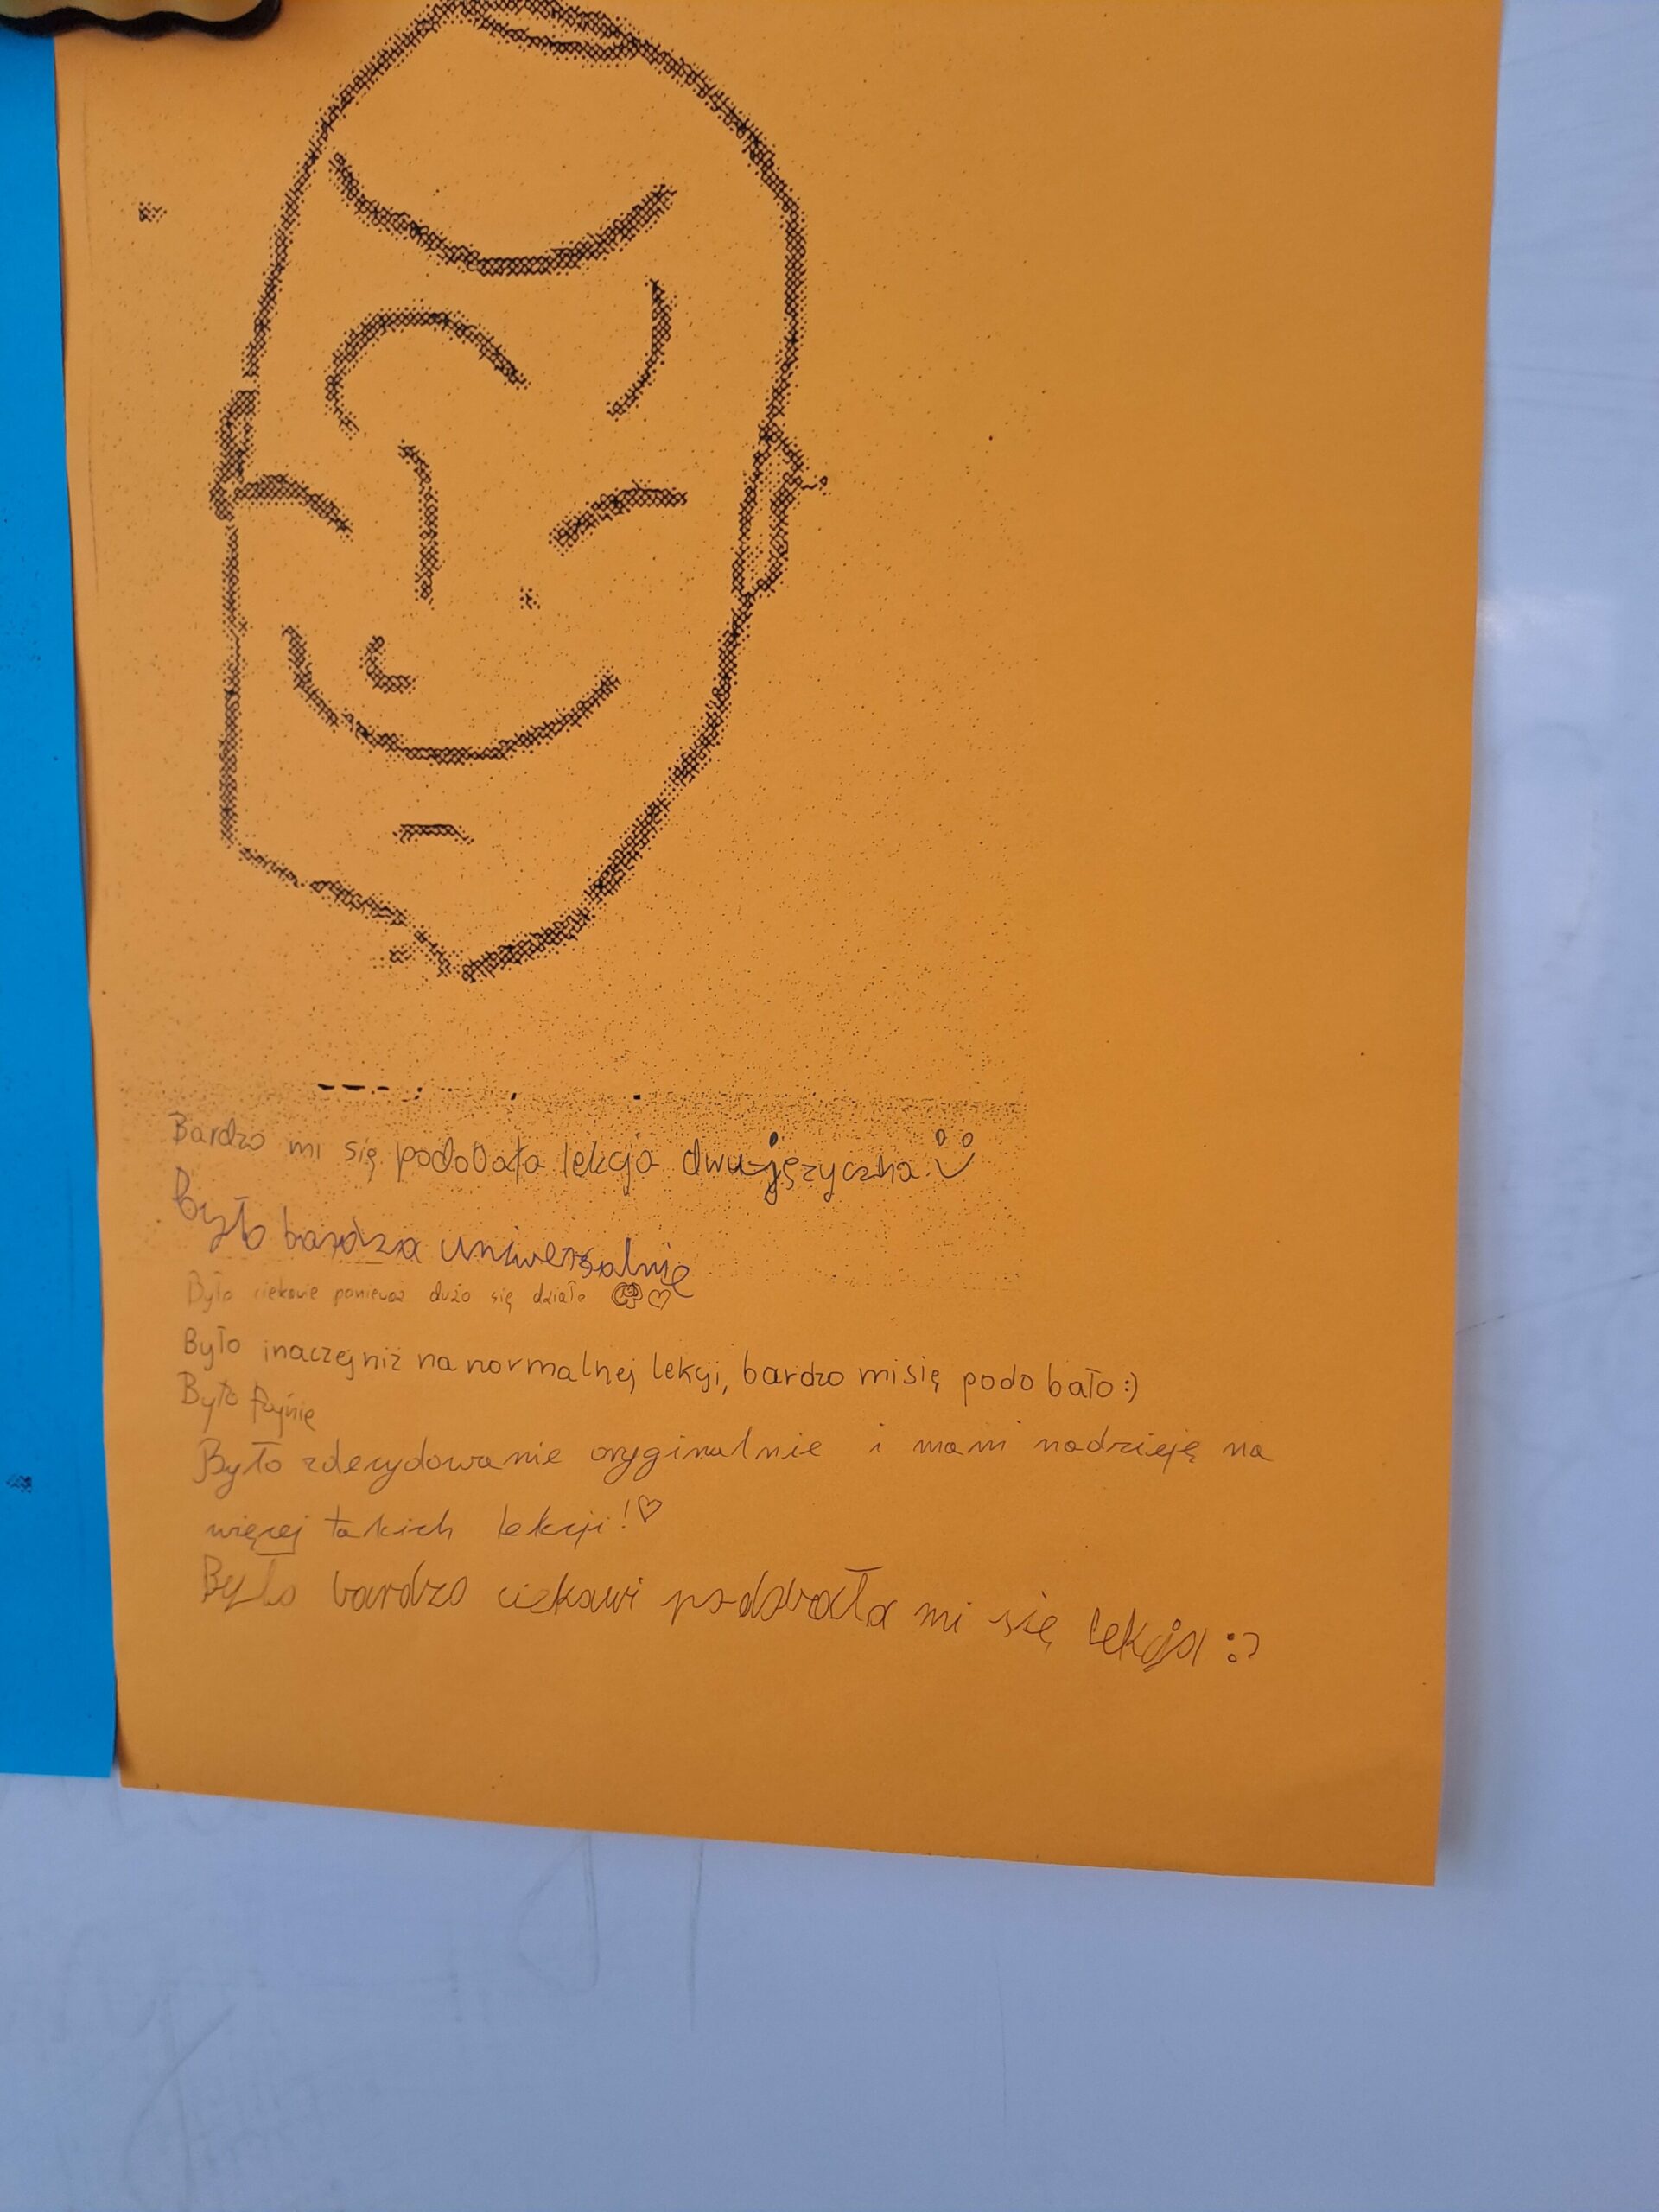 Bardzo mi się podobała lekcja dwujęzyczna :)
Było bardza uniwersalnie
Było ciekawie ponieważ dużo się działo ♡
Było inaczej niż na normalnej lekcji, bardzo mi się podobało :)
Było fajnie
Było zdecydowanie oryginalnie i mam nadzieję na
więcej takich lekcji! ♡
Było bardzo ciekawi podobała mi się lekcja :)